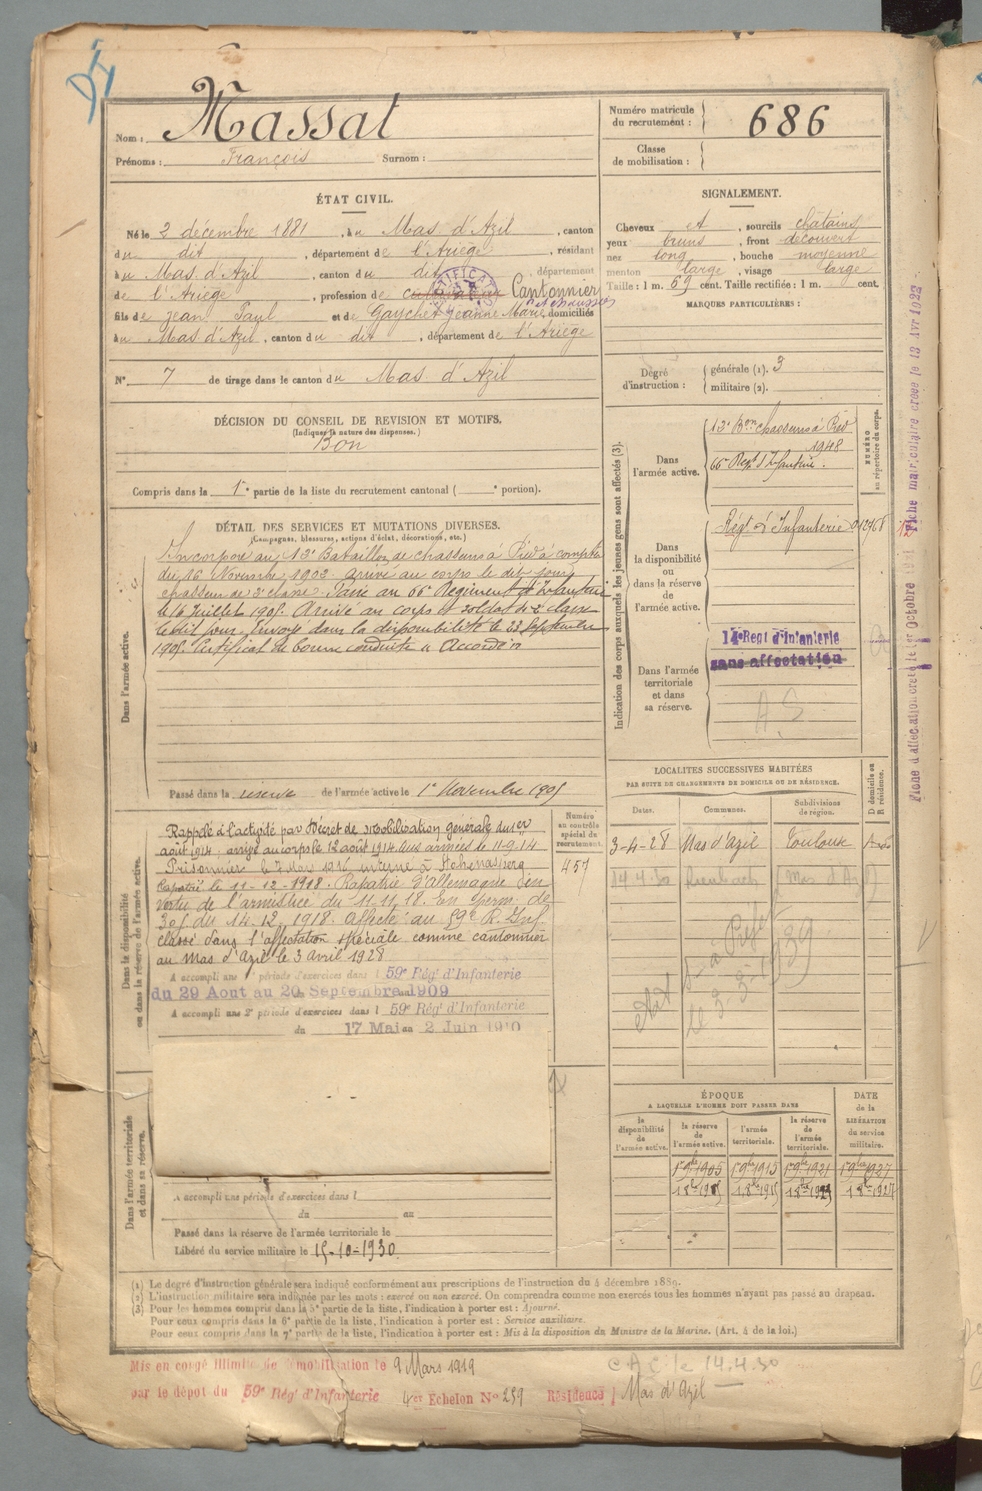 Nom : Massat
Prénoms : François Surnom :
Numéro matricule
du recrutement : 686
Classe
de mobilisation :
ÉTAT CIVIL.
Né le 2 décembre 1881, à u Mas d'Azil, canton
du dit, département de l'Ariège, résidant
à u Mas d'Azil, canton du dit, département
de l'Ariège, profession de cultivateur Cantonnier
fils de Jean Paul et de Gaychet Jeanne Marie domiciliés
à u Mas d'Azil, canton du dit, département de l'Ariège
N° 7 de tirage dans le canton du Mas d'Azil
SIGNALEMENT.
Cheveux et, sourcils châtains
yeux bruns, front découvert
nez long, bouche moyenne
menton large, visage large
Taille : 1 m. 69 cent. Taille rectifiée : 1 m. cent.
MARQUES PARTICULIÈRES :
Degré
d'instruction :
générale (1). 3
militaire (2).
DÉCISION DU CONSEIL DE REVISION ET MOTIFS.
(Indiquer la nature des dispenses.)
Bon
Compris dans la 1e partie de la liste du recrutement cantonal ( e portion).
DÉTAIL DES SERVICES ET MUTATIONS DIVERSES.
(Campagnes, blessures, actions d'éclat, décorations, etc.)
Dans l'armée active.
Incorporé au 13e Bataillon de chasseurs à Pied à compter
du 16 Novembre 1902. Arrivé au corps le dit jour
chasseur de 2e classe. Passé au 66e Régiment d'Infanterie
le 16 Juillet 1905. Arrivé au corps et soldat de 2e classe
le dit jour. Envoyé dans la disponibilité le 23 Septembre
1905 Certificat de bonne conduite "Accordé"
Passé dans la réserve de l'armée active le 1er Novembre 1905
Indication des corps auxquels les jeunes gens sont affectés (3).
NUMÉRO
au répertoire du corps.
Dans
l'armée active.
13e Bon chasseurs à Pied
1948
66e Régt d'Infanterie.
Dans
la disponibilité
ou
dans la réserve
de
l'armée active.
Régt d'Infanterie
Dans l'armée
territoriale
et dans
sa réserve.
14e Regt d'Infanterie
sans affectation
A S
Dans la disponibilité
ou dans la réserve de l'armée active.
Numéro
au contrôle
spécial du
recrutement.
457
Rappelé à l'activité par Décret de Mobilisation générale du 1er
août 1914, arrivé au corps le 12 août 1914. Aux armées le 11-9-14
Prisonnier le 7 Mai 1916 interné à
Rapatrié le 11-12-1918. Rapatrié d'Allemagne en
vertu de l'armistice du 11.11.18. En perm. de
30j du 14.12.1918. Affecté au 59e R. Inf.
classé dans l'affectation spéciale comme cantonnier
au Mas d'Azil le 3 avril 1928
A accompli une 1e période d'exercices dans l 59e Rég' d'Infanterie
du 29 Aout au 20 Septembre 1909
A accompli une 2e période d'exercices dans l 59e Rég' d'Infanterie
du 17 Mai au 2 Juin 1910
LOCALITÉS SUCCESSIVES HABITÉES
PAR SUITE DE CHANGEMENTS DE DOMICILE OU DE RÉSIDENCE.
Dates.
Communes.
Subdivisions
de région.
D domicile ou
R résidence.
3-4-28 Mas d'Azil Toulouse
14.4.30 (Mas d'Azil)
Dans l'armée territoriale
et dans sa réserve.
A accompli une période d'exercices dans l
du au
Passé dans la réserve de l'armée territoriale le
Libéré du service militaire le 15-10-1930.
ÉPOQUE
A LAQUELLE L'HOMME DOIT PASSER DANS
DATE
de la
LIBÉRATION
du service
militaire.
la
disponibilité
de
l'armée active.
la réserve
de
l'armée active.
l'armée
territoriale.
la réserve
de
l'armée
territoriale.
1er 9bre 1905 1er 9bre 1915 1er 9bre 1921 1er 9bre 1927
(1) Le degré d'instruction générale sera indiqué conformément aux prescriptions de l'instruction du 4 décembre 1889.
(2) L'instruction militaire sera indiquée par les mots : exercé ou non exercé. On comprendra comme non exercés tous les hommes n'ayant pas passé au drapeau.
(3) Pour les hommes compris dans la 5e partie de la liste, l'indication à porter est : Ajourné.
Pour ceux compris dans la 6e partie de la liste, l'indication à porter est : Service auxiliaire.
Pour ceux compris dans la 7e partie de la liste, l'indication à porter est : Mis à la disposition du Ministre de la Marine. (Art. 4 de la loi.)
Mis en congé illimité de démobilisation le 9 Mars 1919
par le dépot du 59e Rég' d'Infanterie 4e Echelon N° 259 Résidence Mas d'Azil
C A C le 14.4.30